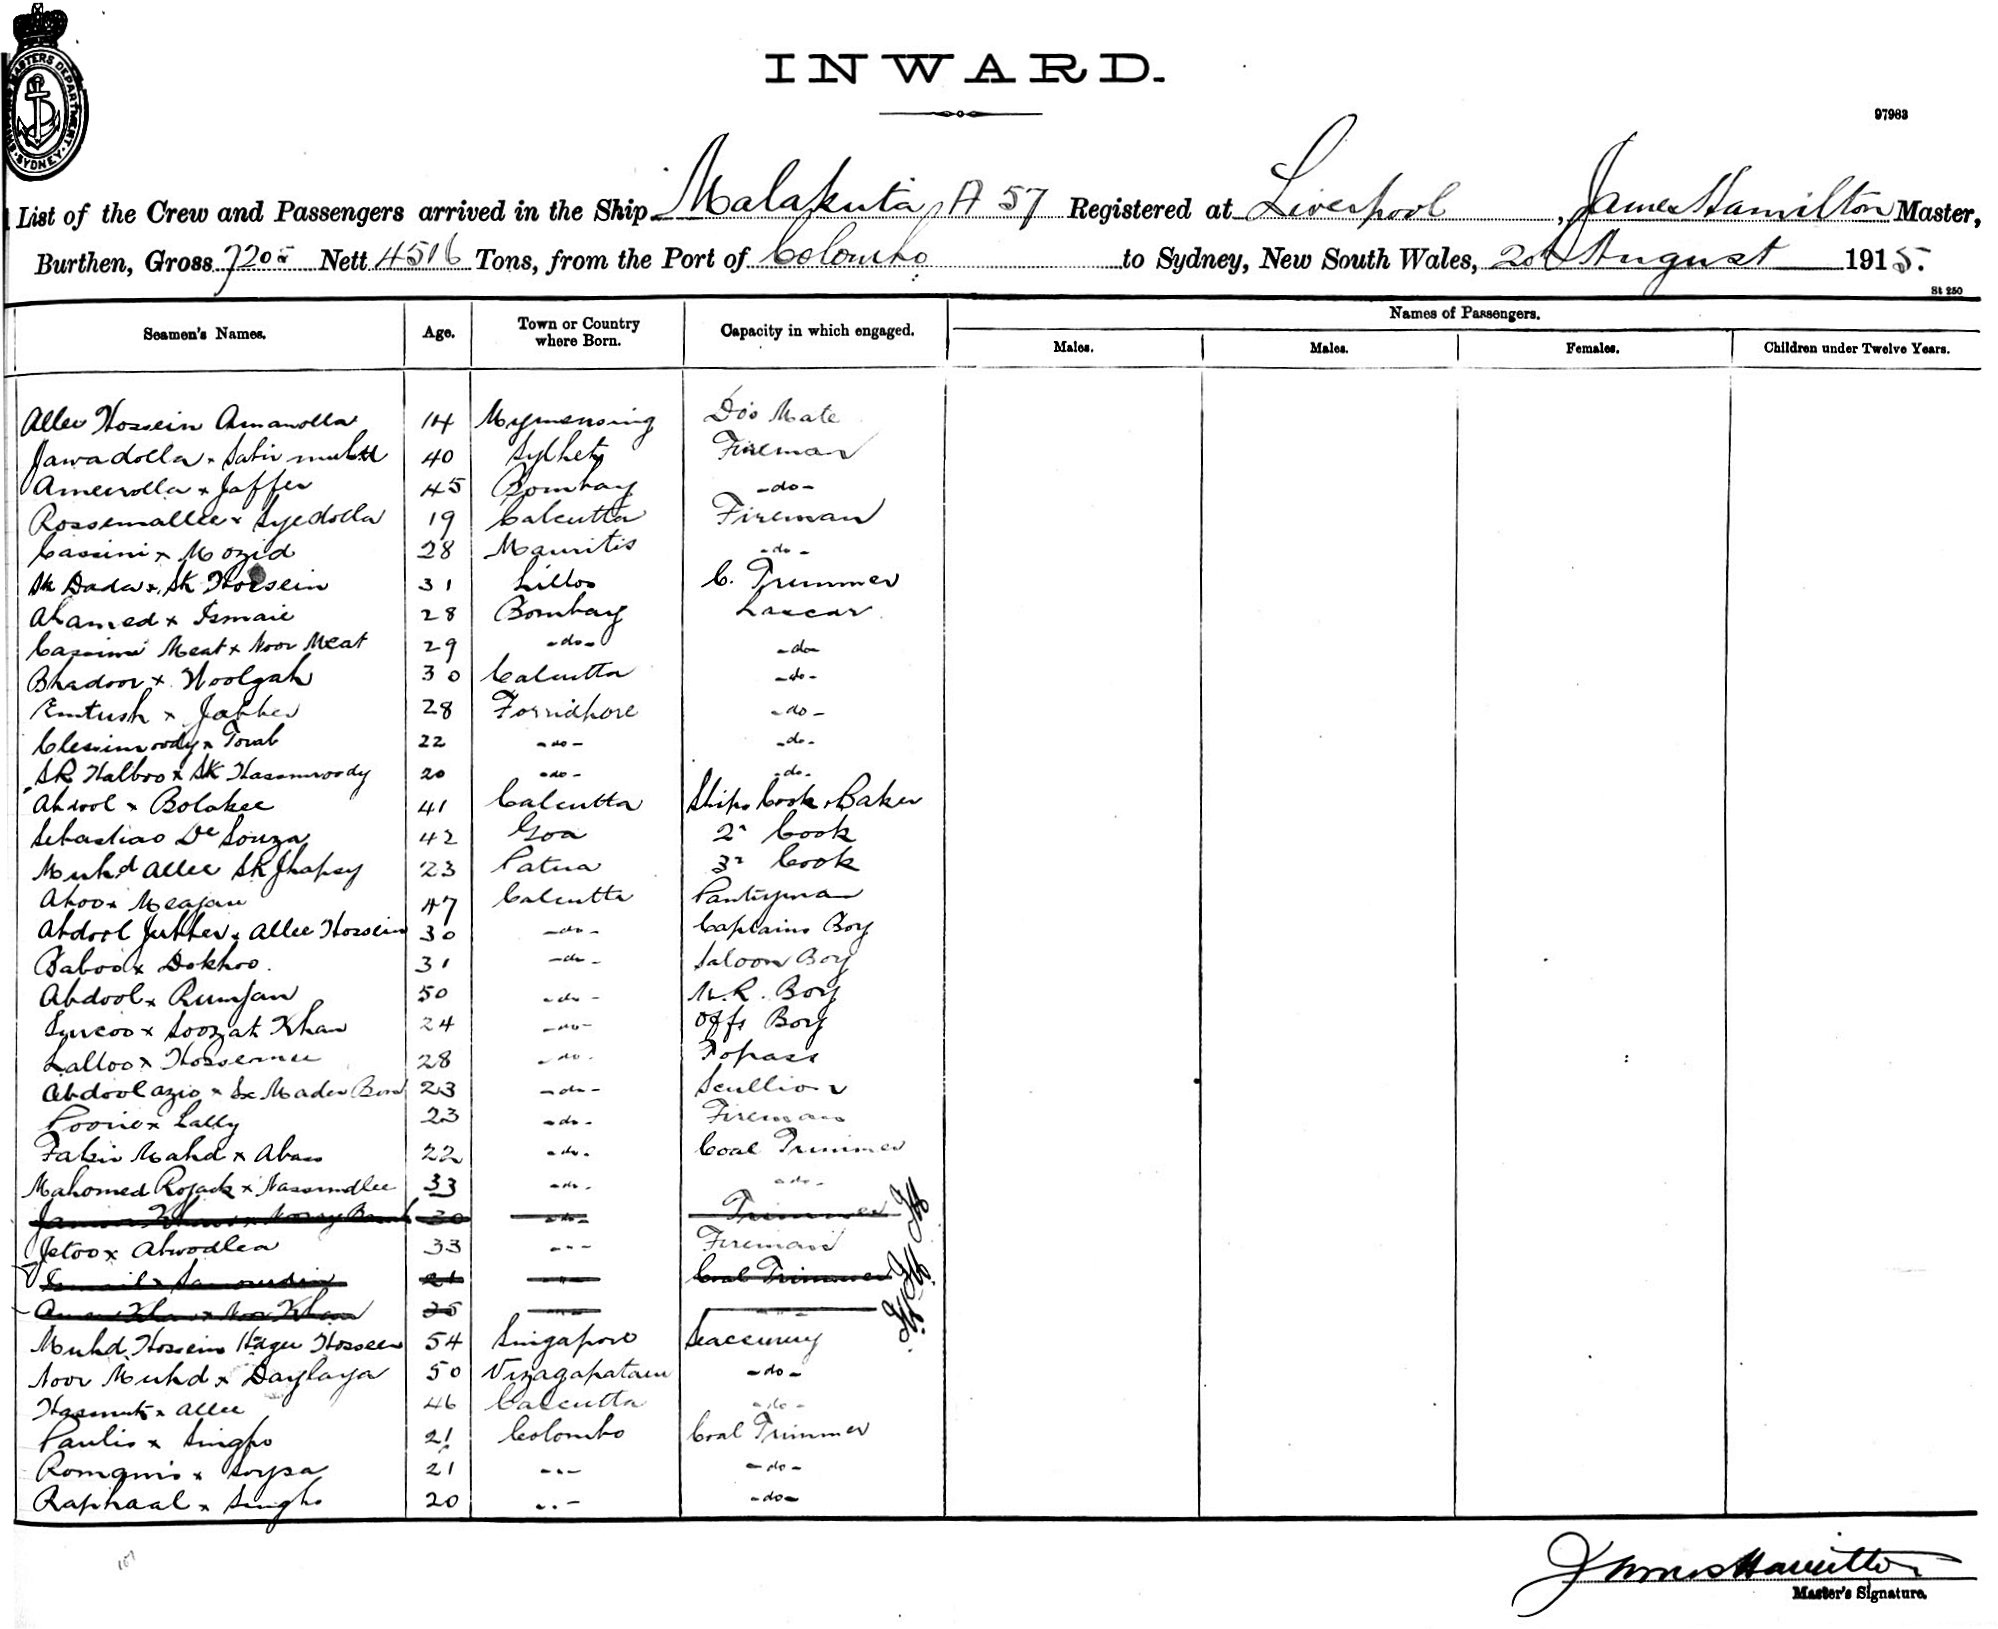 INWARD.
97983
List of the Crew and Passengers arrived in the Ship Malakuta A 57 Registered at Liverpool, James Hamilton Master,
Burthen, Gross 7205 Nett 4516 Tons, from the Port of Colombo to Sydney, New South Wales, August 1915.
St 250
Seamen's Names. Age. Town or Country where Born. Capacity in which engaged. Names of Passengers.
Males. Males. Females. Children under Twelve Years.
Allee Hossein Amanolla 14 Mymensing Do's Mate
Jawadolla x 40 Sylhet Fireman
Ameerolla x Jaffer 45 Bombay -do-
Rossemallee x Syedolla 19 Calcutta Fireman
Cassini x Mozid 28 Mauritis -do-
Sk Dada x Sk Hossein 31 C. Trimmer
Ahamed x Ismail 28 Bombay Lascar
Cassimi Meat x Noor Meat 29 -do- -do-
Bhadoor x Woolgah 30 Calcutta -do-
x Jabber 28 Forridhore -do-
x Torab 22 -do- -do-
Sk Halboo x Sk Hassimroody 20 -do- -do-
Abdool x Bolakee 41 Calcutta Ships Cook & Baker
Sebastiao De Souza 42 Goa 2nd Cook
Muhd Allee Sk Jhapsy 23 Patna 3rd Cook
Aboo x Meajan 47 Calcutta Pantryman
Abdool Jubber x Allee Hossein 30 -do- Captains Boy
Baboo x Dokhoo. 31 -do- Saloon Boy
Abdool x Rumjan 50 -do- M.R. Boy
x Soozat Khan 24 -do- Offs Boy
Lalloo x 28 -do- Topass
Abdool Azio x 23 -do- Scullion
x Lally 23 -do- Fireman
Fakir Mahd x Abass 22 -do- Coal Trimmer
Mahomed Rojack x 33 -do- -do-
30 -do- Trimmer
Jetoo x 33 -do- Fireman
21 -do- Coal Trimmer
Khan x Noor Khan 35 -do- -do-
Muhd Hossein Hagee Hossein 54 Singapore Seaccunny
Noor Muhd x Daylaya 50 Vizagapatam -do-
Hasmut x Allee 46 Calcutta -do-
Paulis x Singho 21 Colombo Coal Trimmer
Romanis x Soysa 21 -do- -do-
Raphaal x Singho 20 -do- -do-
107
James Hamilton
Master's Signature.